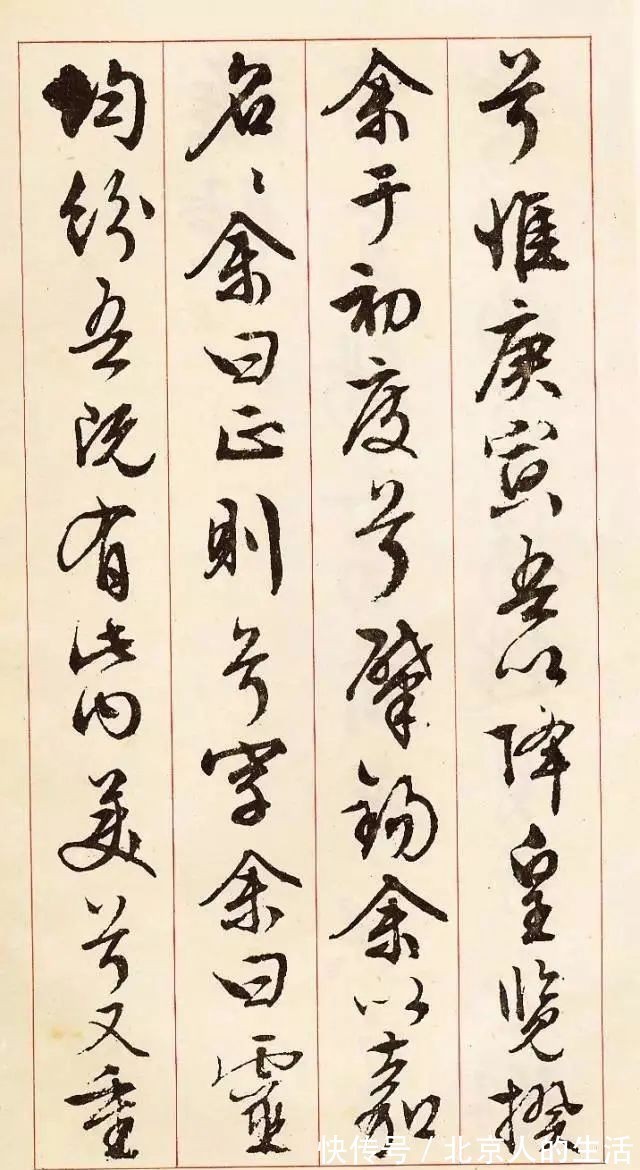 兮惟庚寅吾以降皇览揆
余于初度兮肇锡余以嘉
名名余曰正则兮字余曰灵
均纷吾既有此内美兮又重
快传号/北京人的生活